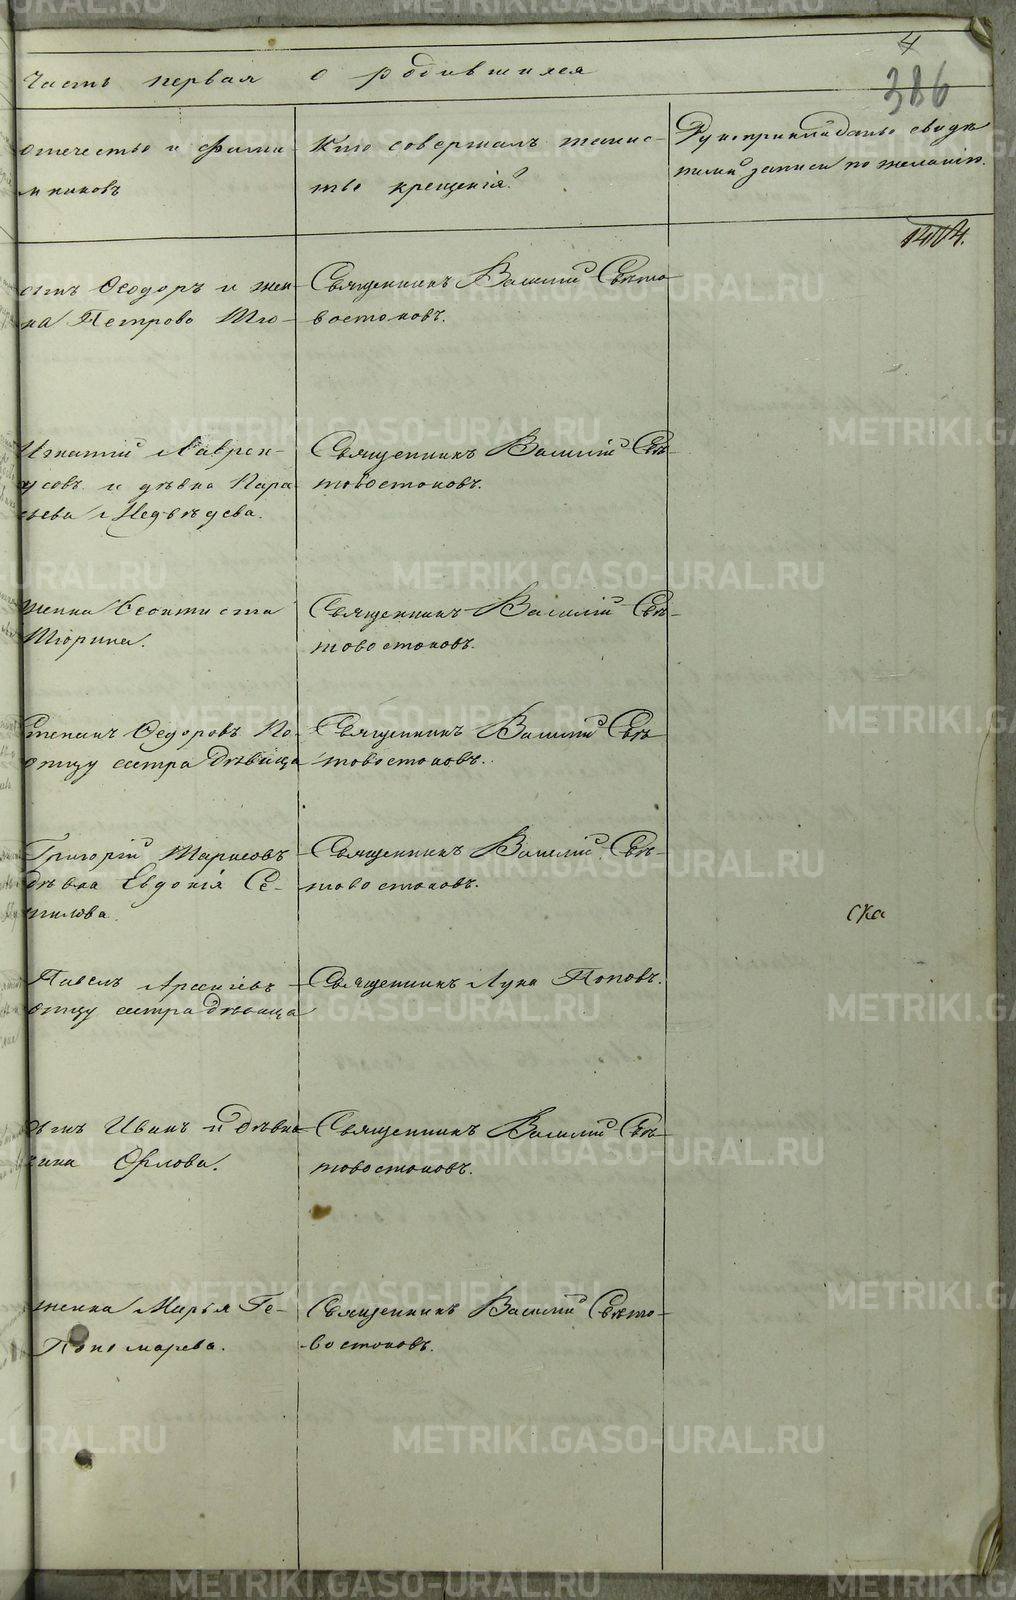 4
386
Часть первая о родившихся
отечество и фами-
мниковъ
Кто совершалъ таинс-
тво крещенія?
Рукоприкладство свидѣ
записи по желанію.
1404.
Ѳеодоръ и жен
на Петрова Тю-
Священникъ Василій Свѣто
востоковъ.
Игнатій Лаврен-
усовъ и дѣвка Пара
ьева Медвѣдева.
Священникъ Василій Свѣ-
товостоковъ.
женка Ѳеоктиста
Тюрина.
Священникъ Василій Свѣ-
товостоковъ.
Степанъ Ѳедоровъ По-
отцу сестра дѣвица
Священникъ Василій Свѣ
товостоковъ.
Григорій Тарасовъ
дѣвка Евдокія Се-
Священникъ Василій Свѣ-
товостоковъ.
Павелъ Арсеніевъ
отцу сестра дѣвица
Священникъ Лука Поповъ.
сынъ Иванъ и дѣвка
Орлова.
Священникъ Василій Свѣ-
товостоковъ.
женка Марья Ге-
Пономарева.
Священникъ Василій Свѣто-
востоковъ.
METRIKI.GASO-URAL.RU